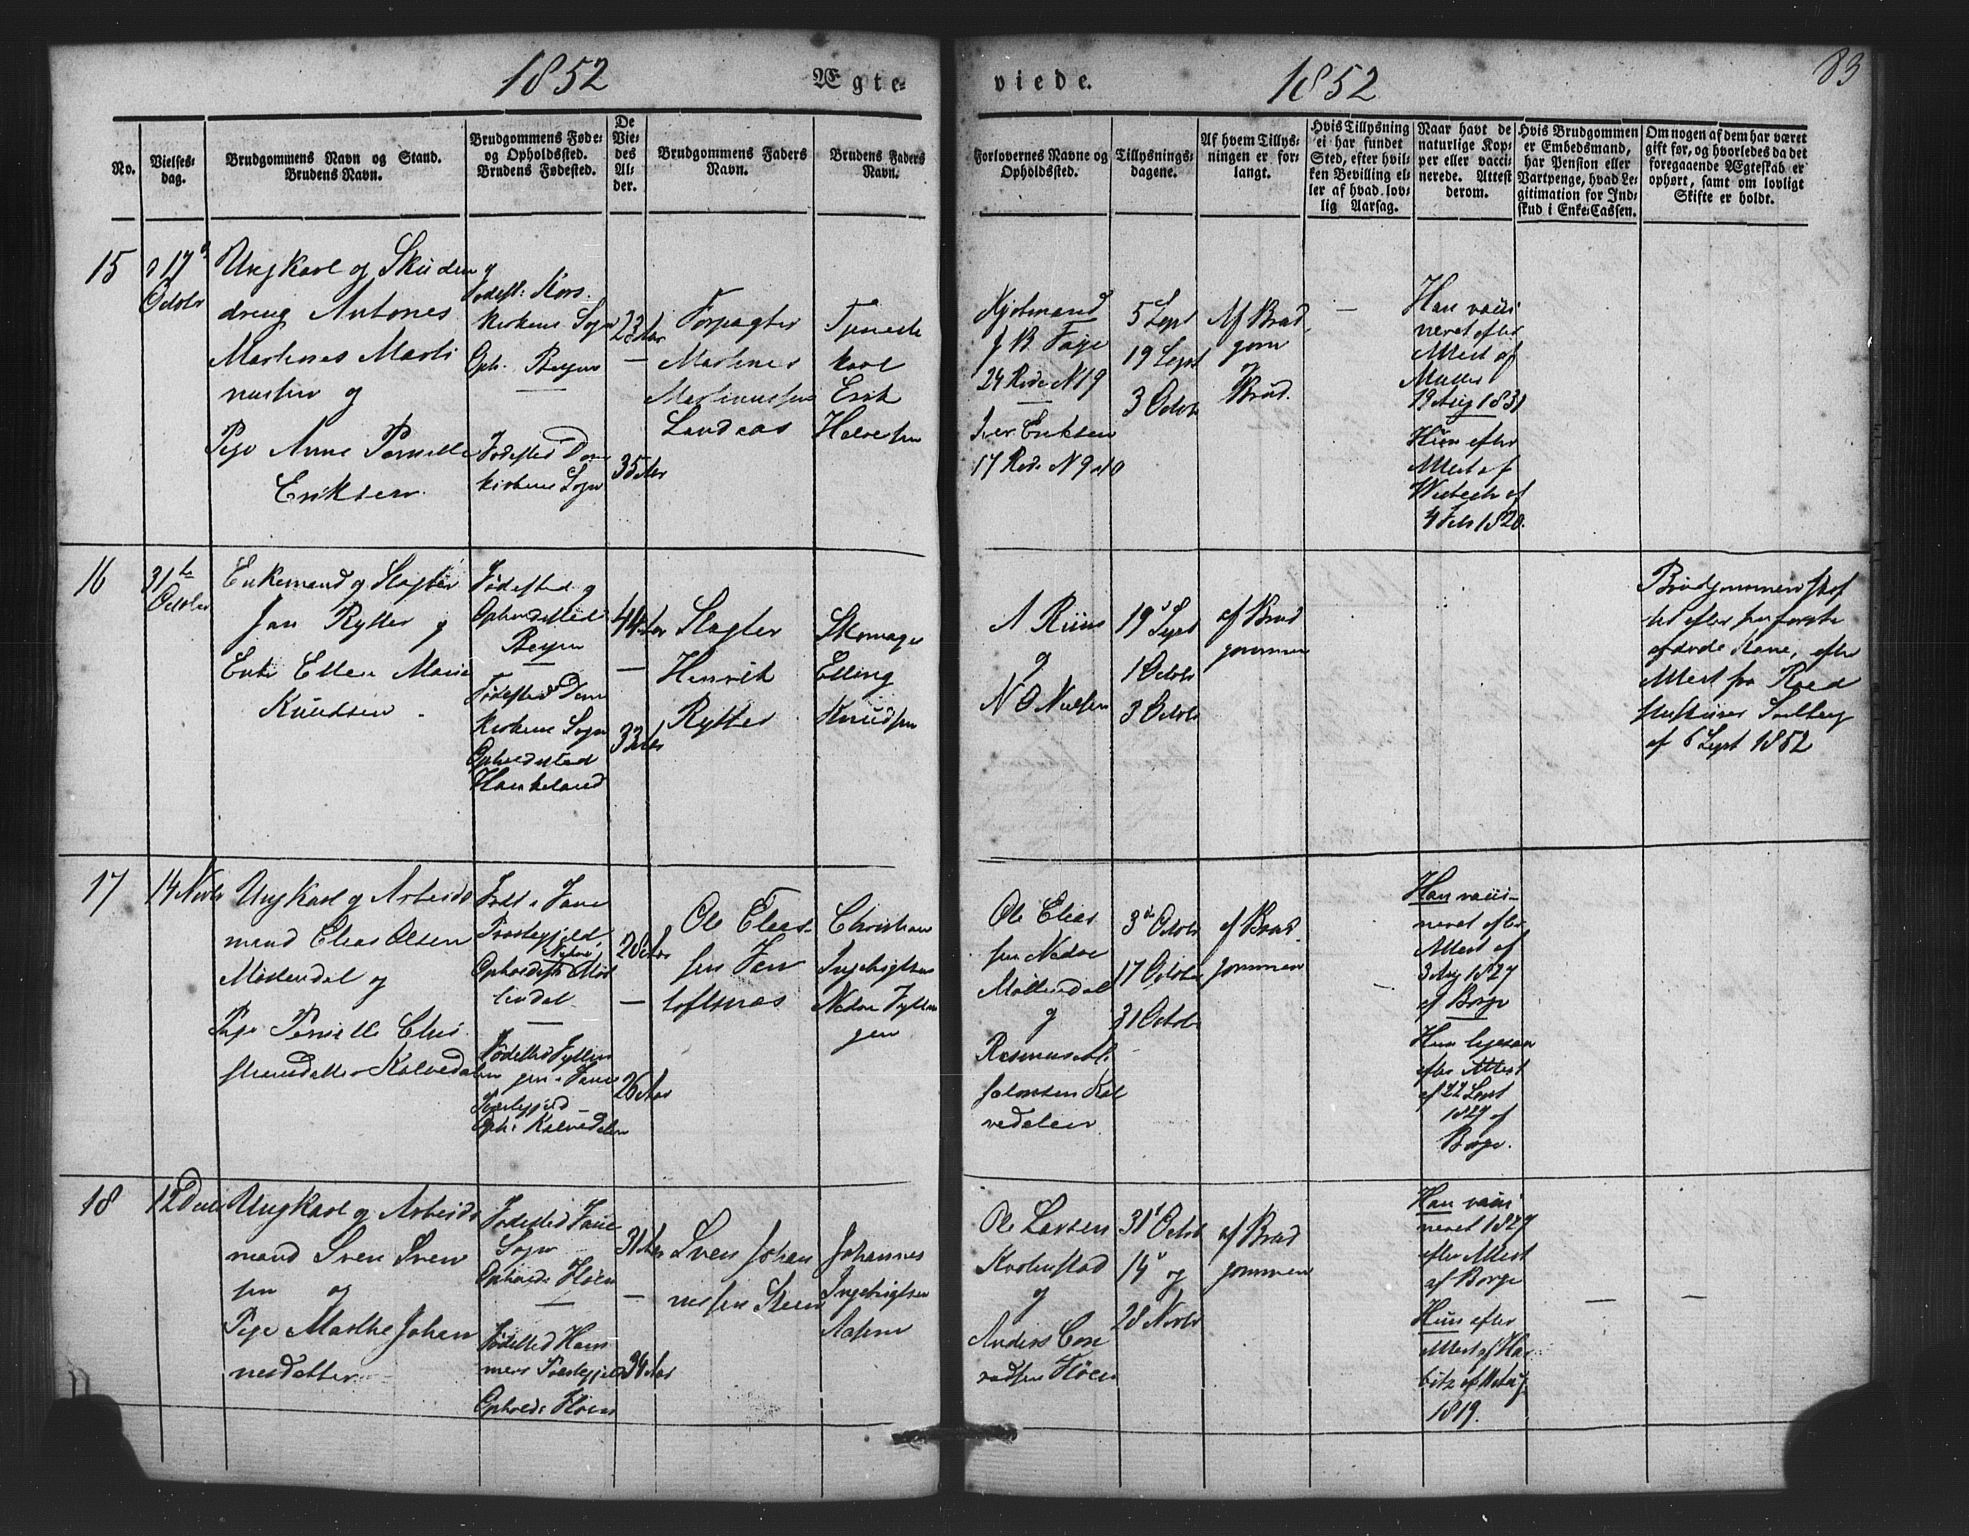 1852
Ægte-
viede.
1852
83
No.
Vielses-
dag.
Brudgommens Navn og Stand.
Brudens Navn.
Brudgommens Føde-
og Opholdssted.
Brudens Fødested.
De
Vie-
des
Al-
der.
Brudgommens Faders
Navn.
Brudens Faders
Navn.
Forlovernes Navne og
Opholdssted.
Tillysnings-
dagene.
Af hvem Tillys-
ningen er for-
langt.
Hvis Tillysning
ei har fundet
Sted, efter hvil-
ken Bevilling el-
ler af hvad lov-
lig Aarsag.
Naar havt de
naturlige Kop-
per eller vacci-
nerede. Attest
derom.
Hvis Brudgommen
er Embedsmand,
har Pension eller
Vartpenge, hvad Le-
gitimation for Ind-
skud i Enke-Cassen.
Om nogen af dem har været
gift før, og hvorledes da det
foregaaende Ægteskab er
ophørt, samt om lovligt
Skifte er holdt.
15
17
Octobr
Ungkarl og
dreng Antones
Martines Marti
nussen og
Pige Anne Pernille
Eriksen
Fødest: Kors-
kirkens Sogn
Oph. Bergen
Fødested Dom
kirkens Sogn
23 Aar
35 Aar
Forpagter
Martines
Martinussen
Landaas
Tjeneste
karl
Erik
Halvorsen
24 Rode N 19
Iver Eriksen
17 Rode N 9
5 Sept
19 Sept
3 Octob
Af Brud
gom
og
Brud.
Han vacci
neret efter
Attest af
Müller
19 Aug 1831
Hun efter
Attest af
4 Feb 1820.
16
31te
Octobr
Enkemand og Slagter
Jan Rytter og
Enke Ellen Marie
Knudsen
Fødested og
Opholdssted
Bergen
Fødested Dom
kirkens Sogn
Opholdssted
Haukeland
44 Aar
33 Aar
Slagter
Henrik
Rytter
Skomager
Elling
Knudsen
A Riis
og
N O Nielsen
19 Sept
1 Octob
3 Octob
af Brud
gommen
Brudgommen skif
tet efter sin første
afdøde Kone, efter
Attest fra Raad
af 6 Sept 1852
17
14 Novbr
Ungkarl og Arbeids
mand Elias Olsen
Møllendal og
Pige Pernille Chri
stiansdatter Kalvedalen
Født i Fane
Præstegjeld
Opholdest. Møl
lendal
Fødested Fyllin
gen i Fane
Præstegjeld
Oph: Kalvedalen
28 Aar
26 Aar
Ole Elias
sen
Christian
Ingebrigtsen
Nedre Fyllin
gen
Ole Elias
sen Nedre
Møllendal
og
Rasmus
Kal
vedalen
3 Octob
17 Octob
31 Octob
af Brud
gommen
Han vacci-
neret efter
Attest af
3 Aug 1827
af Borge
Hun ligesaa
efter Attest
af 22 Sept
1827 af
Borge.
18
12 Decbr
Ungkarl og Arbeids
mand Sven Sven
sen og
Pige Marthe Johan
nesdatter
Fødested Fane
Sogn
Opholds: Fløen
Fødested Ham
mers Præstegjeld
Opholds: Fløen
31 Aar
34 Aar
Sven Johan
nessen Steen
Johannes
Ingebrigtsen
Ole Larsen
Krohnstad
og
Anders Con
radsen Fløen
31 Octob
14 og
28 Novbr
af Brud
gommen
Han vacci
neret 1827
efter Attest
af Borge
Hun efter
Attest af Har
bitz af
1819.